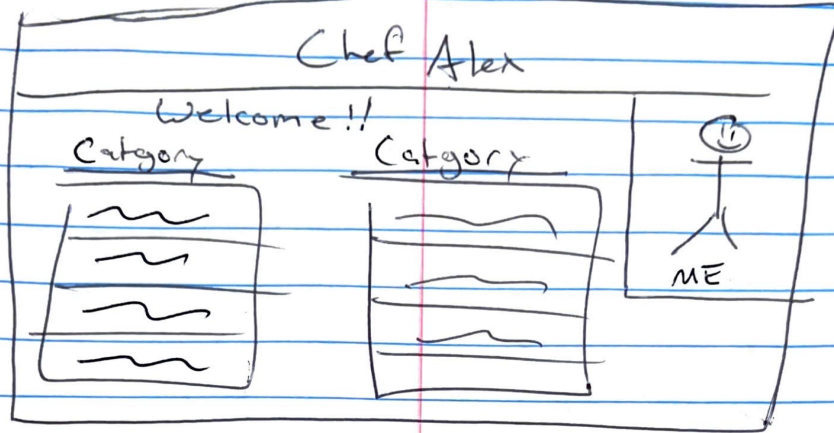 Chef Alex
Welcome!!
Catgory Catgory
ME